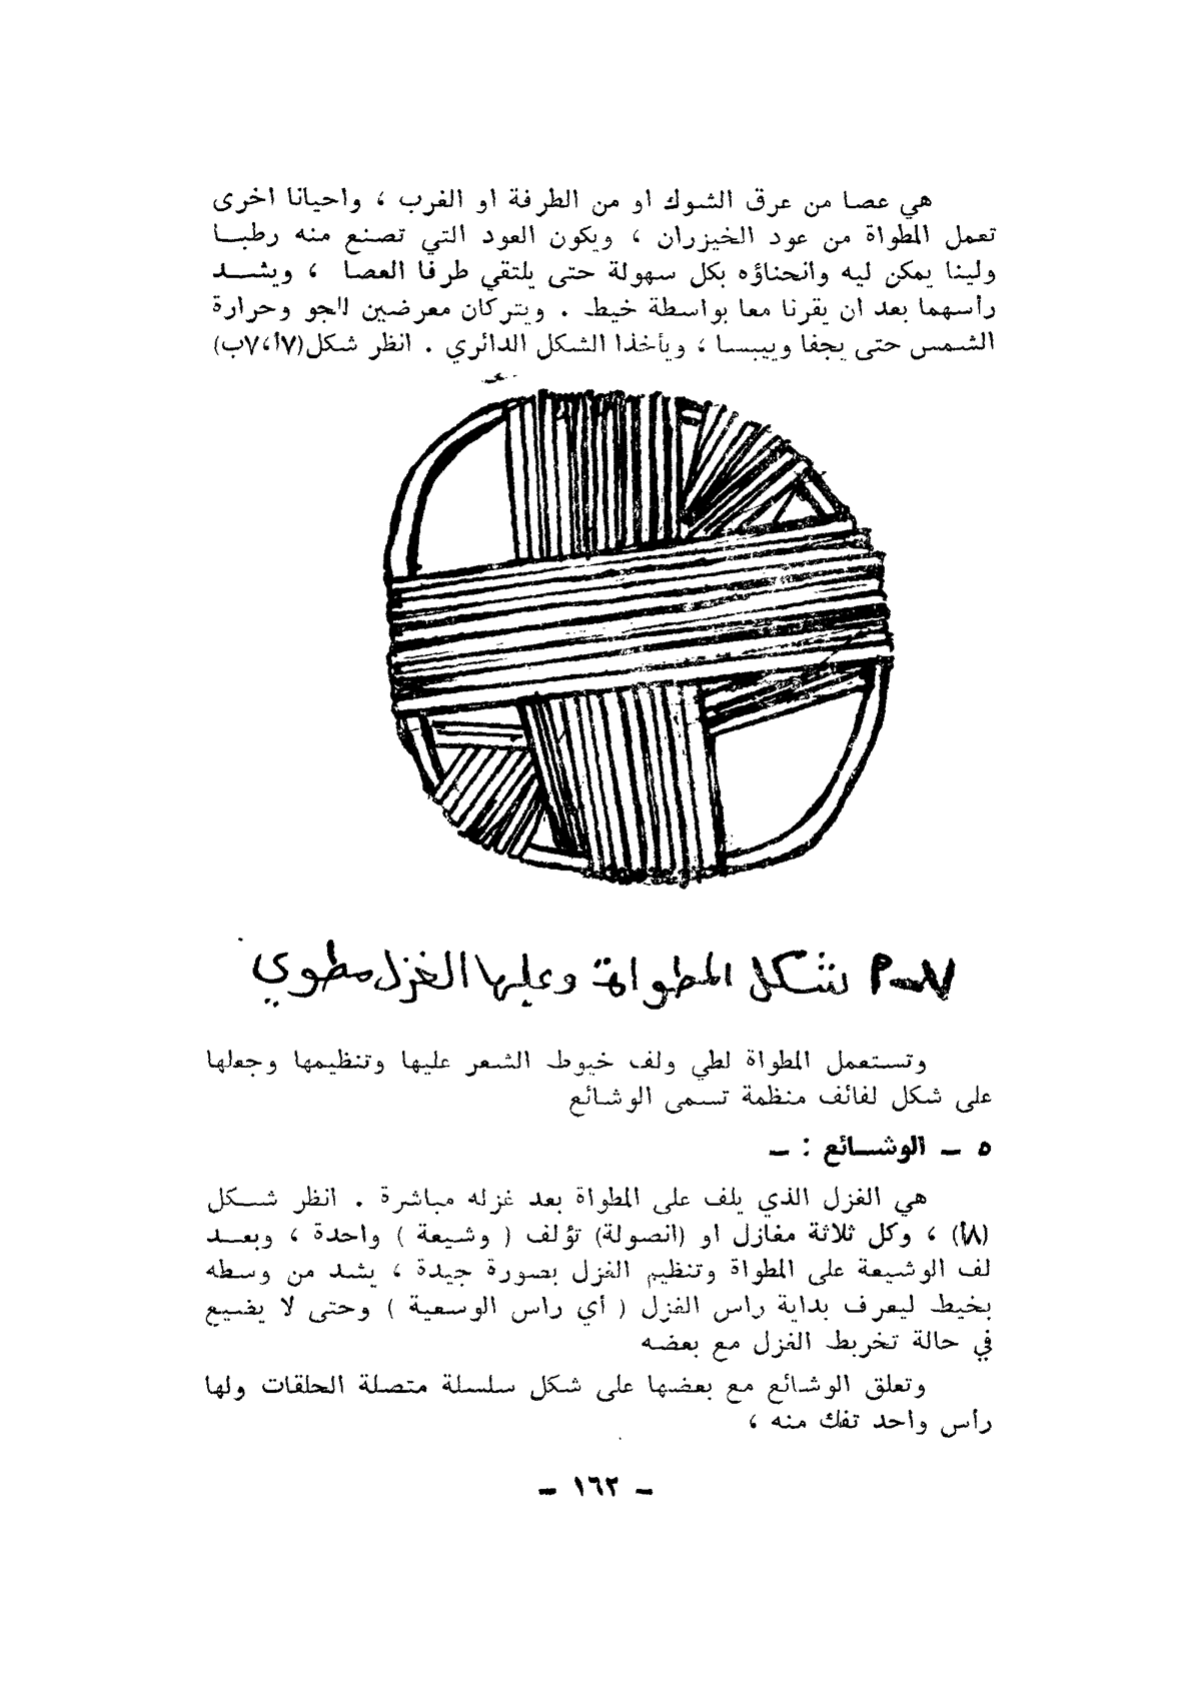 هي عصا من عرق الشوك او من الطرفة او الغرب ، واحيانا اخرى
تعمل المطواة من عود الخيزران ، ويكون العود التي تصنع منه رطبا
ولينا يمكن ليه وانحناؤه بكل سهولة حتى يلتقي طرفا العصا ، ويشد
رأسهما بعد ان يقرنا معا بواسطة خيط . ويتركان معرضين للجو وحرارة
الشمس حتى يجفا وييبسا ، ويأخذا الشكل الدائري . انظر شكل(٧أ،٧ب)
شكل المطواة وعليها الغزل مطوي
وتستعمل المطواة لطي ولف خيوط الشعر عليها وتنظيمها وجعلها
على شكل لفائف منظمة تسمى الوشائع
٥ ــ الوشائع : ــ
هي الغزل الذي يلف على المطواة بعد غزله مباشرة . انظر شكل
(٨أ) ، وكل ثلاثة مغازل او (انصولة) تؤلف ( وشيعة ) واحدة ، وبعد
لف الوشيعة على المطواة وتنظيم الغزل بصورة جيدة ، يشد من وسطه
بخيط ليعرف بداية راس الغزل ( أي راس الوسعية ) وحتى لا يضيع
في حالة تخربط الغزل مع بعضه
وتعلق الوشائع مع بعضها على شكل سلسلة متصلة الحلقات ولها
رأس واحد تفك منه ،
ــ ١٦٢ ــ